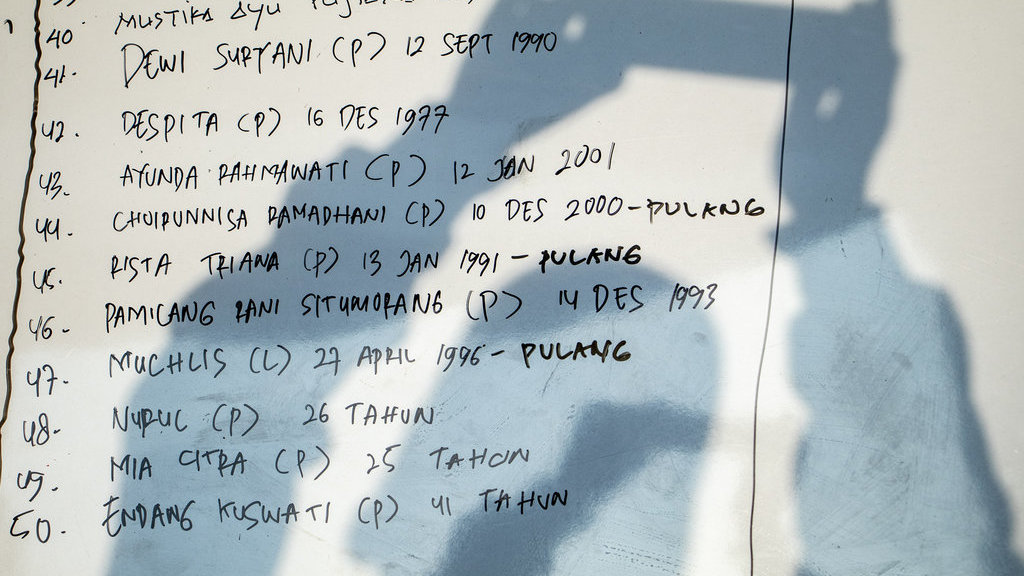 40. MUSTIKA AYU
41. DEWI SURYANI (P) 12 SEPT 1990
42. DESPITA (P) 16 DES 1977
43. AYUNDA RAHMAWATI (P) 12 JAN 2001
44. CHOIPUNNISA RAMADHANI (P) 10 DES 2000 - PULANG
45. RISTA TRIANA (P) 13 JAN 1991 - PULANG
46. PAMICANG RANI SITUMORANG (P) 14 DES 1993
47. MUCHLIS (L) 27 APRIL 1996 - PULANG
48. NURUL (P) 26 TAHUN
49. MIA CITRA (P) 25 TAHUN
50. ENDANG KUSWATI (P) 41 TAHUN